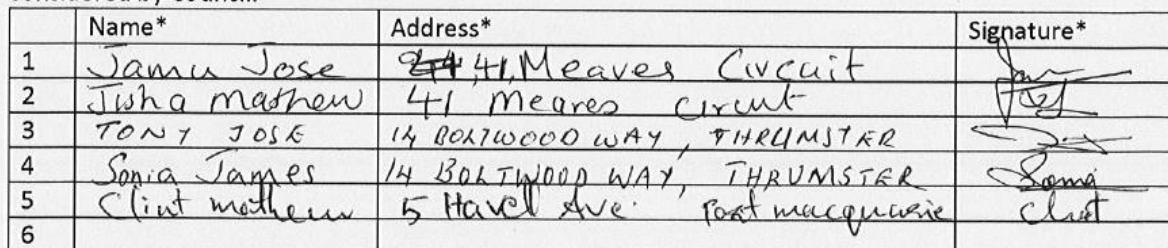 Name* Address* Signature*
1 Jose 41, Meaves Circuit
2 Jisha Mathew 41 Meares circuit
3 TONY JOSE 14 BOLTWOOD WAY, THRUMSTER
4 Sonia James 14 BOLTWOOD WAY, THRUMSTER Somi
5 Clint mathew 5 Havel Ave. Port macquarie Clint
6